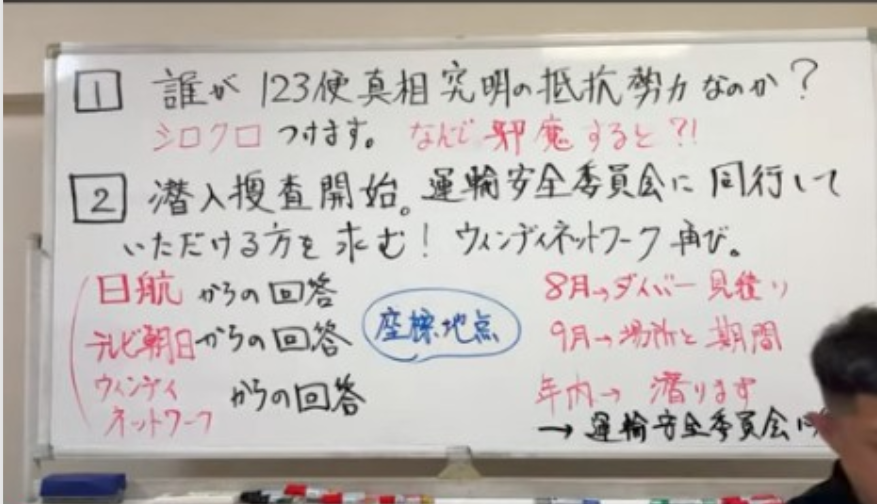 1 誰が123便真相究明の抵抗勢力なのか?
シロクロつけます。なんで邪魔すると?!
2 潜入捜査開始。運輸安全委員会に同行して
いただける方を求む! ウィンディネットワーク再び。
日航からの回答
テレビ朝日からの回答
ウィンディ
ネットワークからの回答
座標地点
8月→ダイバー見積り
9月→場所と期間
年内→潜ります
→運輸安全委員会に